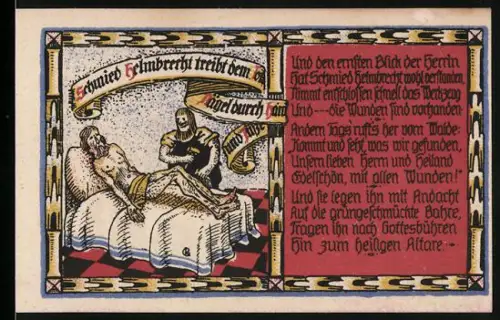 Schmied Helmbrecht treibt dem
Nägel durch Händ
und Füße
Und den ernsten Blick der Herrin
Hat Schmied Helmbrecht wohl verstanden,
Nimmt entschlossen schnell das Werkzeug
Und – die Wunden sind vorhanden.
Andern Tags rufts her vom Walde:
Kommt und seht, was wir gefunden,
Unsern lieben Herrn und Heiland
Edelschön, mit allen Wunden!"
Und sie legen ihn mit Andacht
Auf die grüngeschmückte Bahre,
Tragen ihn nach Gottesbühren
Hin zum heiligen Altare.